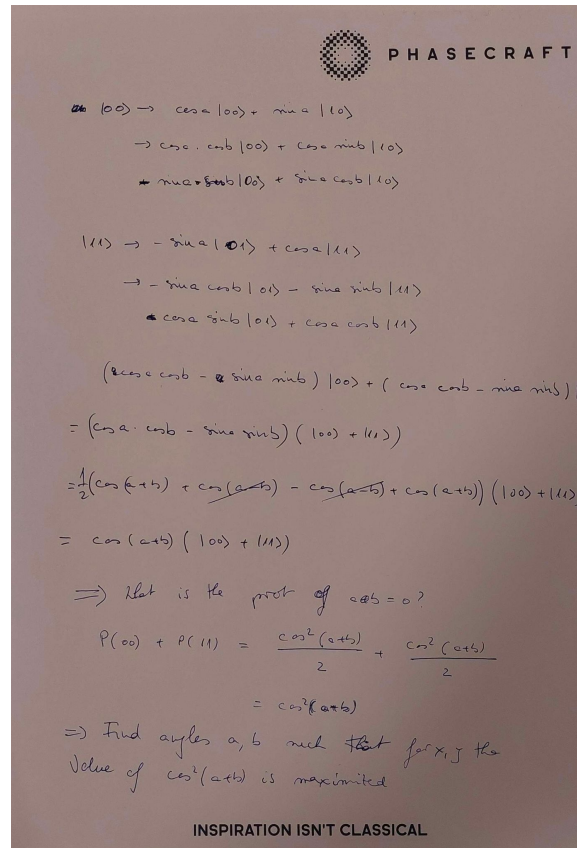 PHASECRAFT
|00⟩ → cosa |00⟩ + sina |10⟩
→ cosa . cosb |00⟩ + cosa sinb |10⟩
- sina sinb |00⟩ + sina cosb |10⟩
|11⟩ → - sina |01⟩ + cosa |11⟩
→ - sina cosb |01⟩ - sina sinb |11⟩
cosa sinb |01⟩ + cosa cosb |11⟩
(cosa cosb - sina sinb) |00⟩ + (cosa cosb - sina sinb)
= (cosa . cosb - sina sinb) (|00⟩ + |11⟩)
= 1/2 (cos(a+b) + cos(a-b) - cos(a-b) + cos(a+b)) (|00⟩ + |11⟩
= cos(a+b) (|00⟩ + |11⟩)
⟹ What is the prob of a⊕b = 0?
P(00) + P(11) = cos²(a+b)/2 + cos²(a+b)/2
= cos²(a+b)
⟹ Find angles a, b such that for x, y the
value of cos²(a+b) is maximized
INSPIRATION ISN'T CLASSICAL